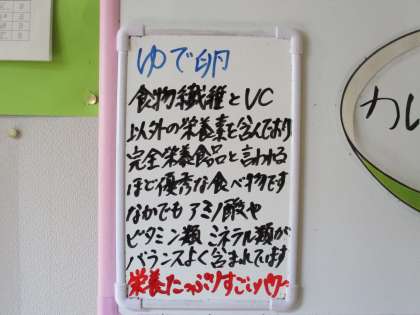 ゆで卵
食物繊維とVC
以外の栄養素を含んでおり
完全栄養食品と言われる
ほど優秀な食べ物です
なかでもアミノ酸や
ビタミン類ミネラル類が
バランスよく含まれています
栄養たっぷりすごいパワー
カレ